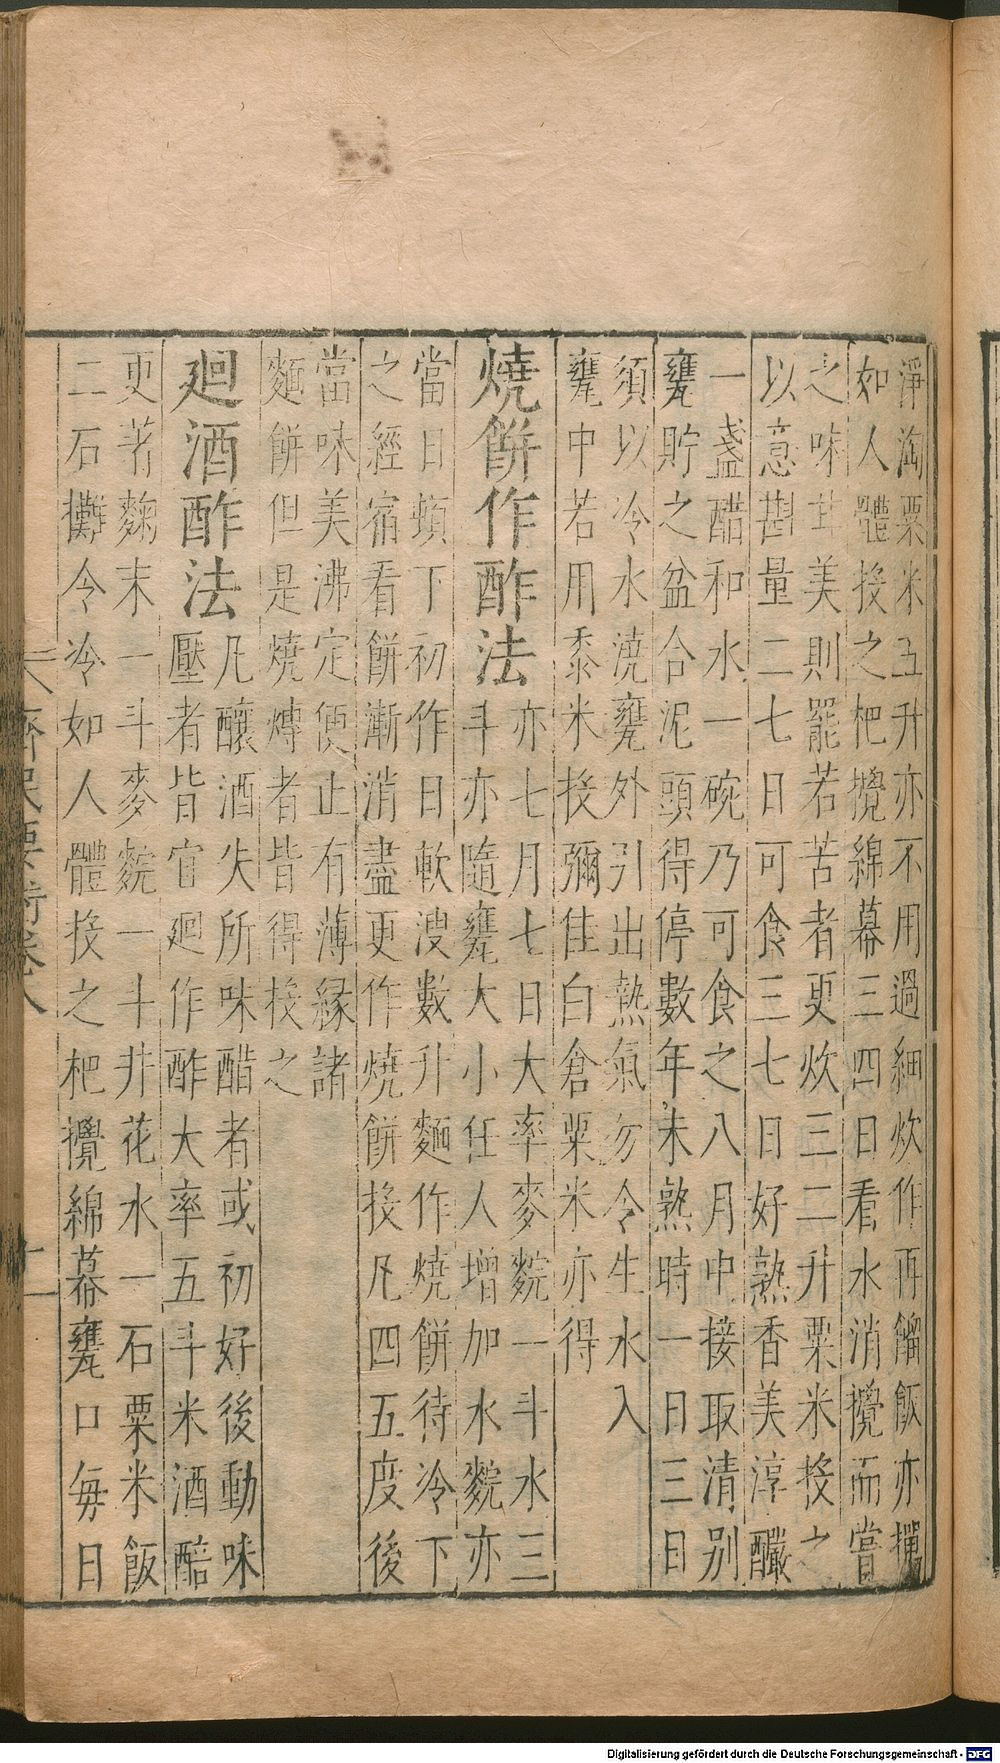 淨淘粟米五升亦不用過細炊作再餾飯亦撣
如人體投之杷攪綿幕三四日看水消攪而嘗
之味甘美則罷若苦者更炊三二升粟米投之
以意斟量二七日可食三七日好熟香美淳釅
一盞醋和水一碗乃可食之八月中接取清别
甕貯之盆合泥頭得停數年未熟時一日三日
須以冷水澆甕外引出熱氣勿令生水入
甕中若用黍米投彌佳白倉粟米亦得
燒餅作酢法
亦七月七日大率麥䴷一斗水三
斗亦隨甕大小任人增加水䴷亦
當日頓下初作日軟溲數升麵作燒餅待冷下
之經宿看餅漸消盡更作燒餅投凡四五度後
當味美沸定便止有薄緣諸
麵餅但是燒煿者皆得投之
廻酒酢法
凡釀酒失所味醋者或初好後動味
壓者皆宜廻作酢大率五斗米酒醅
更著麴末一斗麥䴷一斗井花水一石粟米飯
二石攤令冷如人體投之杷攪綿幕甕口每日
齊民要術卷八
十一
Digitalisierung gefördert durch die Deutsche Forschungsgemeinschaft - DFG